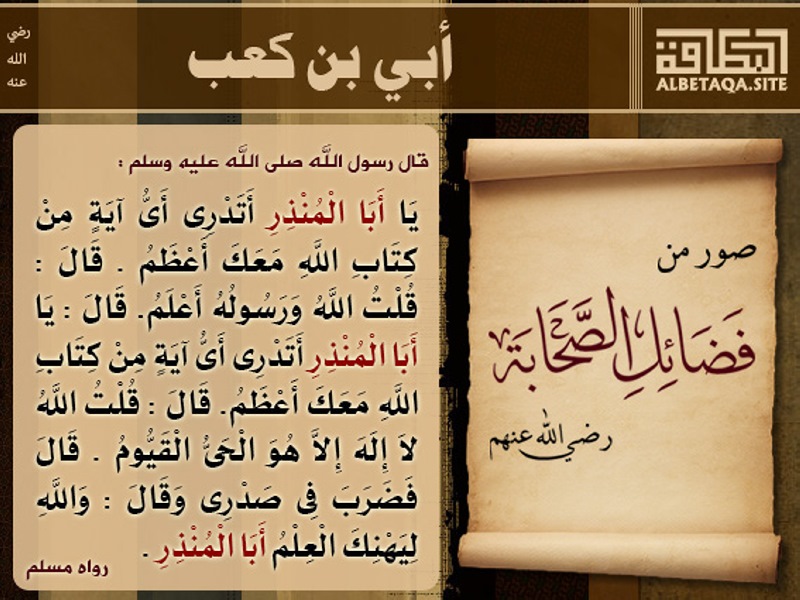 رضي
الله
عنه
أبي بن كعب
البطاقة
ALBETAQA.SITE
صور من
فَضَائِلِ الصَّحَابَة
رضي الله عنهم
قال رسول الله صلى الله عليه وسلم :
يَا أَبَا الْمُنْذِرِ أَتَدْرِى أَىُّ آيَةٍ مِنْ
كِتَابِ اللَّهِ مَعَكَ أَعْظَمُ . قَالَ :
قُلْتُ اللَّهُ وَرَسُولُهُ أَعْلَمُ. قَالَ : يَا
أَبَا الْمُنْذِرِ أَتَدْرِى أَىُّ آيَةٍ مِنْ كِتَابِ
اللَّهِ مَعَكَ أَعْظَمُ. قَالَ : قُلْتُ اللَّهُ
لاَ إِلَهَ إِلاَّ هُوَ الْحَىُّ الْقَيُّومُ . قَالَ
فَضَرَبَ فِى صَدْرِى وَقَالَ : وَاللَّهِ
لِيَهْنِكَ الْعِلْمُ أَبَا الْمُنْذِرِ .
رواه مسلم